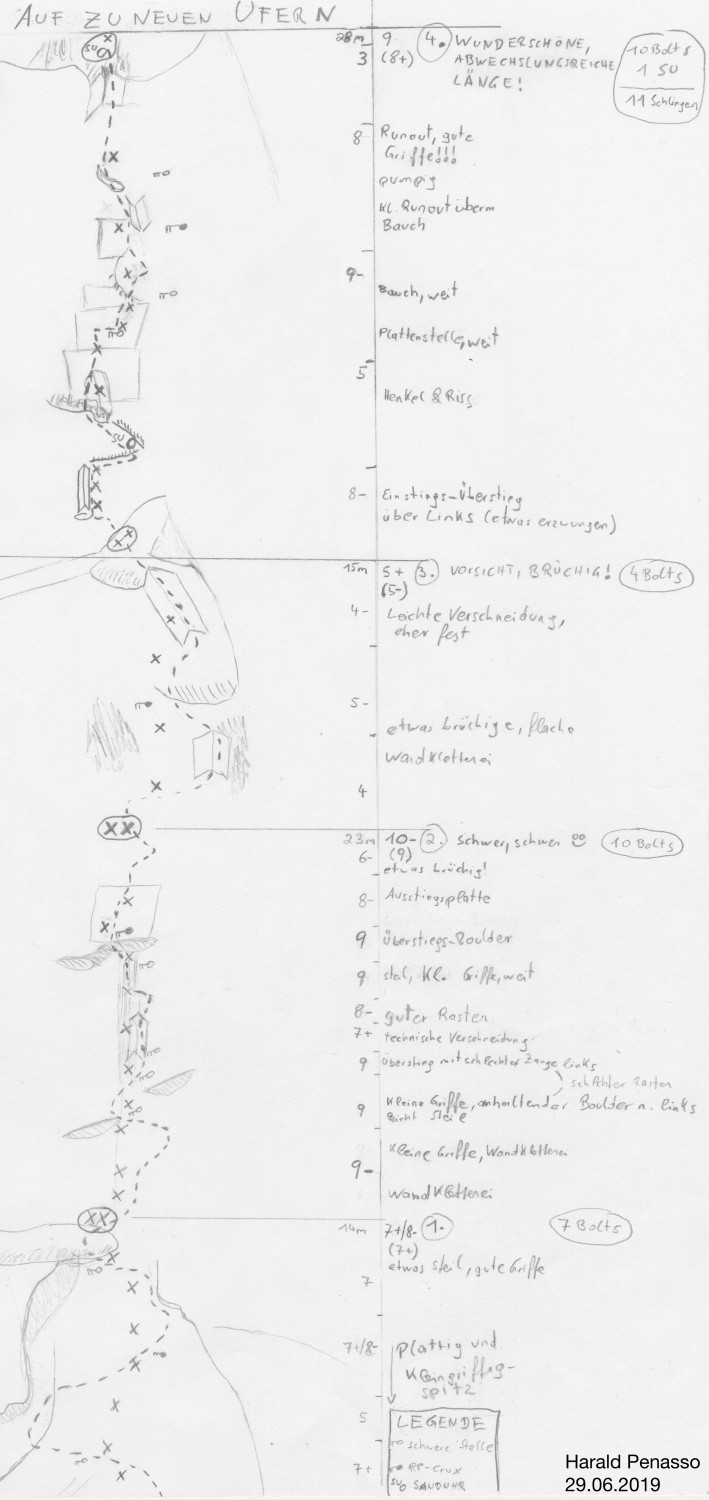 AUF ZU NEUEN UFERN
28m 9 4. WUNDERSCHÖNE,
3 (8+) ABWECHSLUNGSREICHE
LÄNGE!
10 Bolts
1 SU
11 Schlingen
SU
8- Runout, gute
Griffe!!!
pumpig
Kl. Runout überm
Bauch
9-
Bauch, weit
Plattenstelle, weit
5
Henkel & Riss
SU
8- Einstiegs-Überstieg
über Links (etwas erzwungen)
15m 5+ 3. VORSICHT, BRÜCHIG! 4 Bolts
(5-)
4- Leichte Verschneidung,
eher fest
5-
etwas brüchige, flache
Wandkletterei
4
23m 10- 2. Schwer, schwer 10 Bolts
6- (9)
etwas brüchig!
8- Ausstiegsplatte
9 Überstiegs-Boulder
9 steil, Kl. Griffe, weit
8- guter Rasten
7+ technische Verschneidung
9 Überstieg mit schlechter Zange links
schlechter Rasten
9 Kleine Griffe, anhaltender Boulder n. links
leicht steil
Kleine Griffe, Wandkletterei
9-
Wandkletterei
14m 7+/8- 1. 7 Bolts
(7+)
etwas steil, gute Griffe
7
7+/8- plattig und
Kleingriffig-
spitz
5 LEGENDE
schwere Stelle
7+ RP-Crux
SU SANDUHR
Harald Penasso
29.06.2019